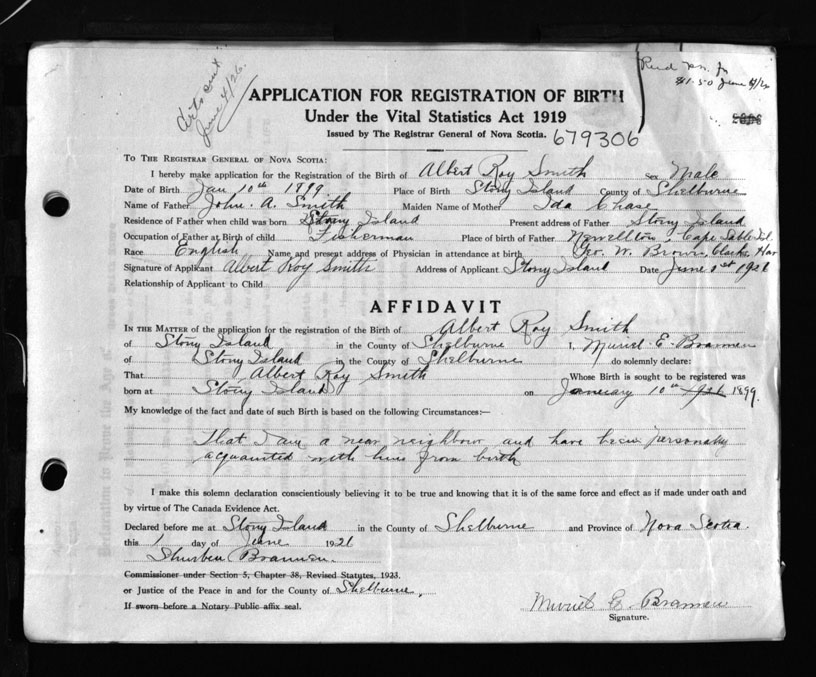 Certs sent
June 4/26.
June 4/26
APPLICATION FOR REGISTRATION OF BIRTH
Under the Vital Statistics Act 1919
Issued by The Registrar General of Nova Scotia.
679306
TO THE REGISTRAR GENERAL OF NOVA SCOTIA:
I hereby make application for the Registration of the Birth of Albert Roy Smith sex Male
Date of Birth Jan 10th 1899 Place of Birth Stony Island County of Shelburne
Name of Father John. A. Smith Maiden Name of Mother Ida Chase
Residence of Father when child was born Stony Island Present address of Father Stony Island
Occupation of Father at Birth of child Fisherman Place of birth of Father Newellton, Cape Sable Isl.
Race English Name and present address of Physician in attendance at birth Geo. W. Brown, Clarks Har
Signature of Applicant Albert Roy Smith Address of Applicant Stony Island Date June 1st 1926
Relationship of Applicant to Child
AFFIDAVIT
IN THE MATTER of the application for the registration of the Birth of Albert Roy Smith
of Stony Island in the County of Shelburne I, Muriel. E. Brannen
of Stony Island in the County of Shelburne do solemnly declare:
That Albert Roy Smith Whose Birth is sought to be registered was
born at Stony Island on January 10th 1926 1899.
My knowledge of the fact and date of such Birth is based on the following Circumstances:—
That I am a near neighbour and have been personaly
acquainted with him from birth
I make this solemn declaration conscientiously believing it to be true and knowing that it is of the same force and effect as if made under oath and
by virtue of The Canada Evidence Act.
Declared before me at Stony Island in the County of Shelburne and Province of Nova Scotia.
this 1 day of June 1926
Brannen.
Commissioner under Section 5, Chapter 38, Revised Statutes, 1923.
or Justice of the Peace in and for the County of Shelburne,
If sworn before a Notary Public affix seal.
Muriel E. Brannen
Signature.